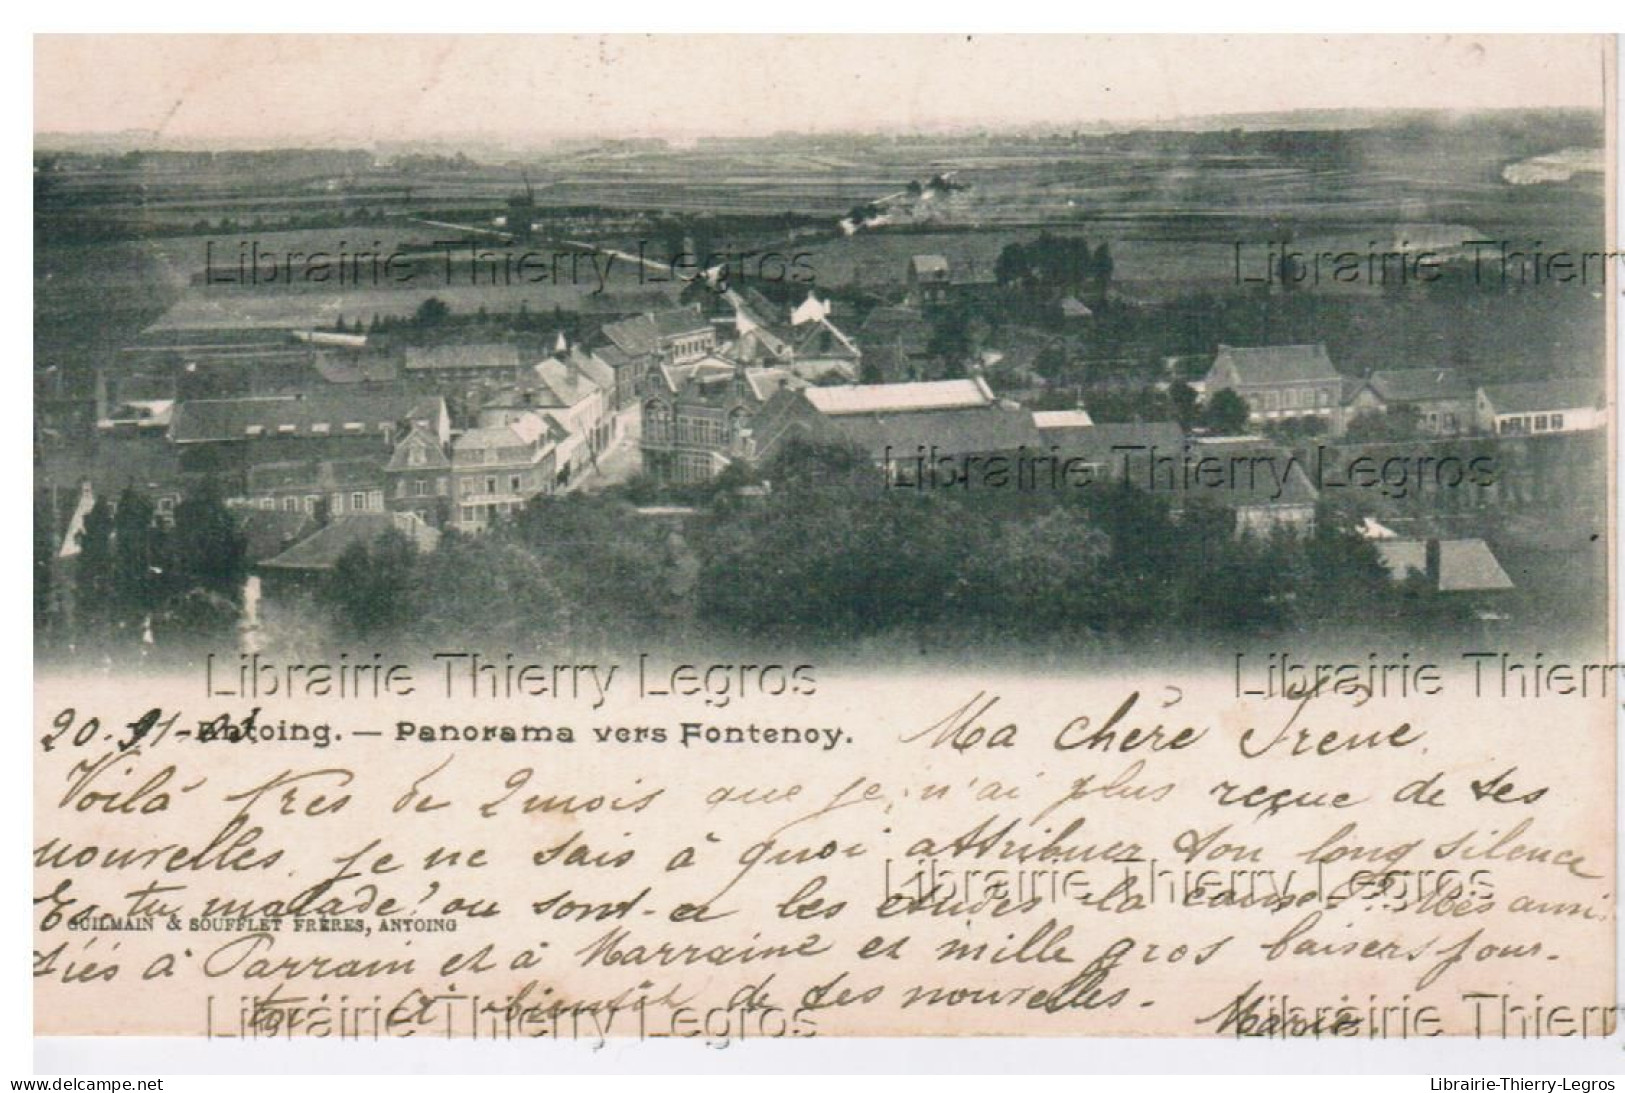 Librairie Thierry Legros
Librairie Thierry
Librairie Thierry Legros
Librairie Thierry Legros
Librairie Thierry
20. 11-03
Antoing. — Panorama vers Fontenoy.
Ma chère Irène.
Voilà près de 2 mois que je n'ai plus reçue de tes
nouvelles. je ne sais à quoi attribuer ton long silence
Es-tu malade? ou sont-ce les études la cause? Mes ami
Librairie Thierry Legros
GUILMAIN & SOUFFLET FRÈRES, ANTOING
tiés à Parrain et à Marraine et mille gros baisers pour
toi. A bientôt de tes nouvelles.
Marie.
Librairie Thierry Legros
Librairie Thierry
www.delcampe.net
Librairie-Thierry-Legros